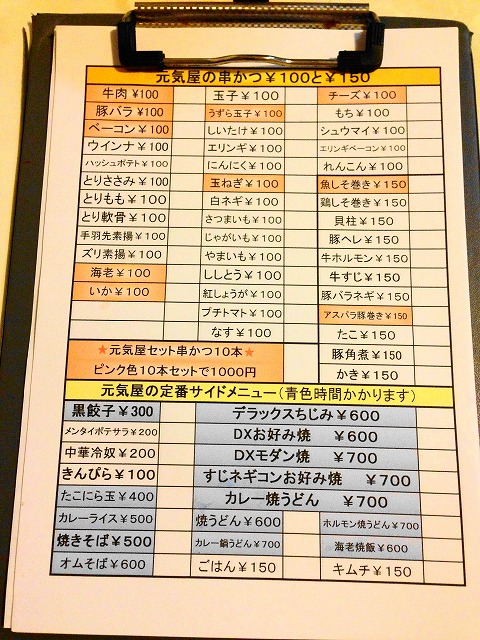 元気屋の串かつ￥100と￥150
牛肉 ¥100 玉子￥100 チーズ￥100
豚バラ ¥100 うずら玉子￥100 もち￥100
ベーコン￥100 しいたけ￥100 シュウマイ￥100
ウインナ ¥100 エリンギ￥100 エリンギベーコン￥100
ハッシュポテト ¥100 にんにく￥100 れんこん￥100
とりささみ￥100 玉ねぎ￥100 魚しそ巻き￥150
とりもも￥100 白ネギ￥100 鶏しそ巻き￥150
とり軟骨￥100 さつまいも￥100 貝柱￥150
手羽先素揚￥100 じゃがいも￥100 豚ヘレ￥150
ズリ素揚￥100 やまいも￥100 牛ホルモン￥150
海老￥100 ししとう￥100 牛すじ￥150
いか￥100 紅しょうが￥100 豚バラネギ￥150
プチトマト￥100 アスパラ豚巻き￥150
なす￥100 たこ￥150
★元気屋セット串かつ10本★ 豚角煮￥150
ピンク色10本セットで1000円 かき￥150
元気屋の定番サイドメニュー(青色時間かかります)
黒餃子￥300 デラックスちじみ￥600
メンタイポテサラ￥200 DXお好み焼 ￥600
中華冷奴￥200 DXモダン焼 ￥700
きんぴら￥100 すじネギコンお好み焼 ￥700
たこにら玉￥400 カレー焼うどん ￥700
カレーライス￥500 焼うどん￥600 ホルモン焼うどん￥700
焼きそば￥500 カレー鍋うどん￥700 海老焼飯￥600
オムそば￥600 ごはん￥150 キムチ￥150